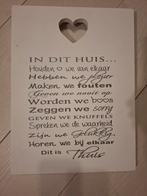 IN DIT HUIS...
Houden we van elkaar
Hebben we plezier
Maken we fouten
Geven we nooit op
Worden we boos
Zeggen we sorry
GEVEN WE KNUFFELS
Spreken we de waarheid
Zijn we gelukkig
Horen we bij elkaar
Dit is Thuis